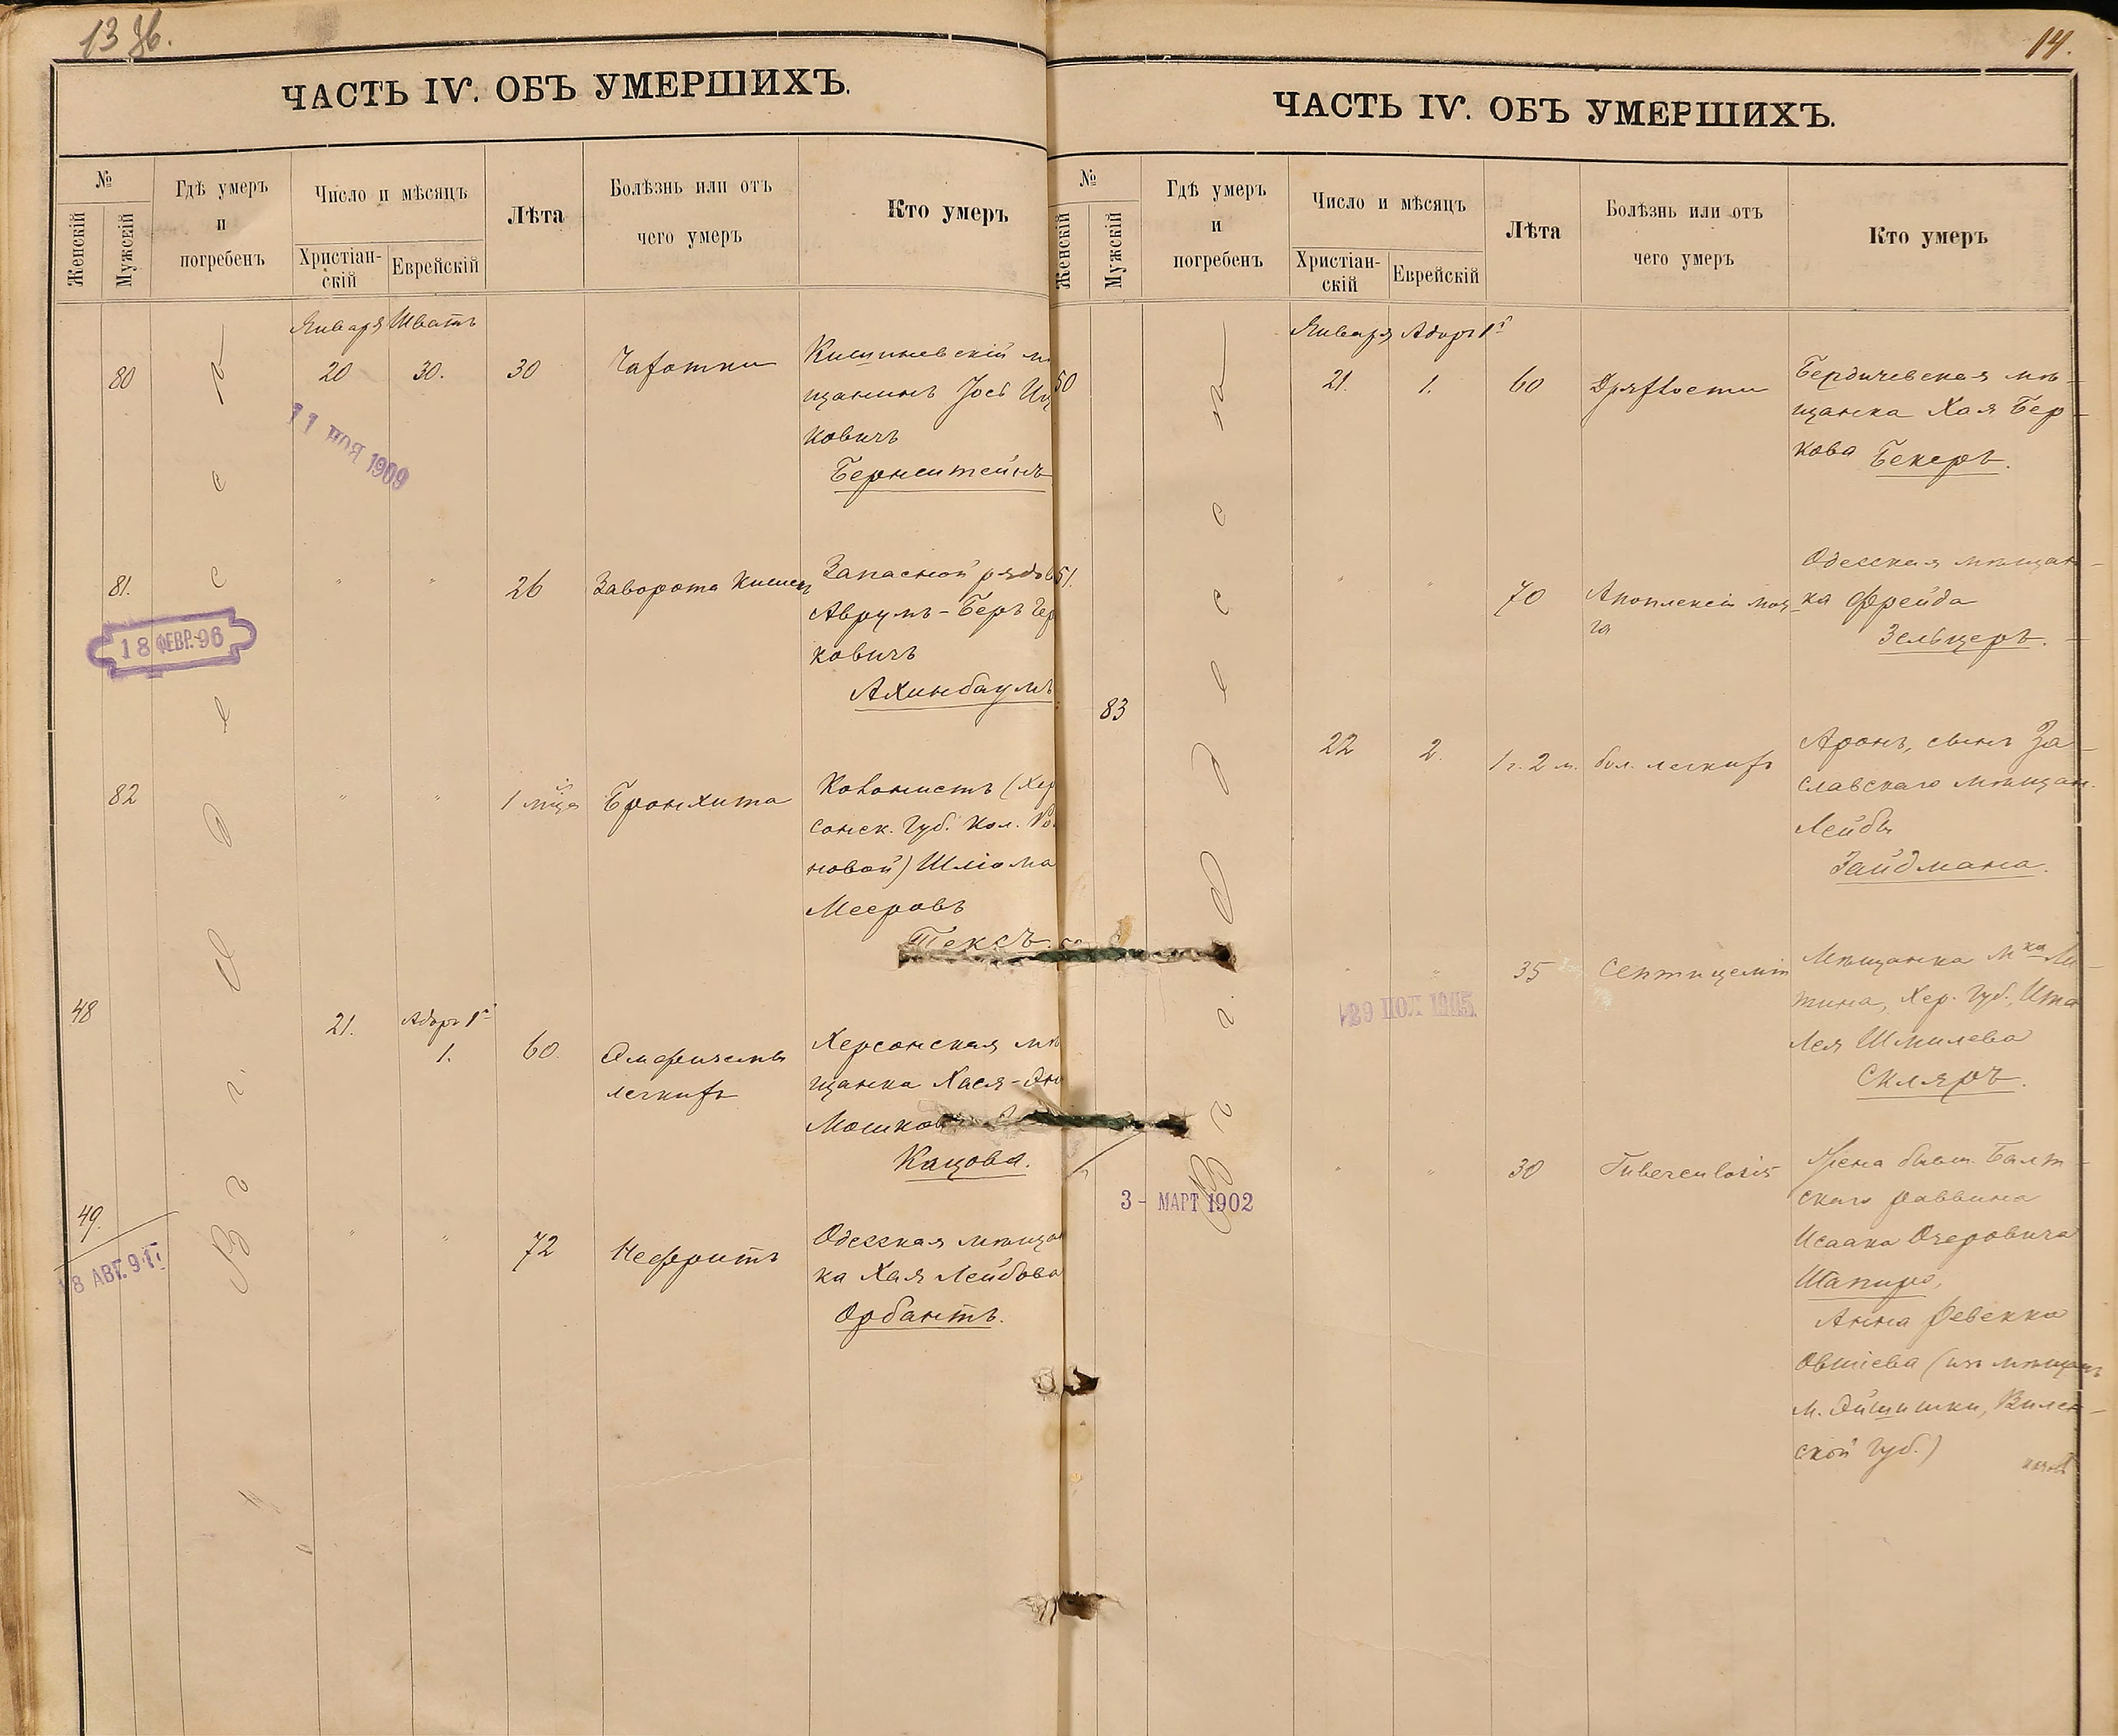 13 об.
ЧАСТЬ IV. ОБЪ УМЕРШИХЪ.
№
Женскій
Мужскій
Гдѣ умеръ
и
погребенъ
Число и мѣсяцъ
Христіан-
скій
Еврейскій
Лѣта
Болѣзнь или отъ
чего умеръ
Кто умеръ
Января Шватъ
80 20 30. 30 Чахотки
Кишиневскій мѣ
щанинъ Іосъ Иц
ковичъ
Бернштейнъ
11 НОЯ 1909
81. " " 26 Заворота кишекъ
Запасной рядов
Аврумъ-Беръ Гер
ковичъ
Ахинбаумъ
18 ФЕВР. 96
82 " " 1 мѣца Бронхита
Колонистъ (Хер
сонск. губ. кол.
новой) Шліома
Мееровъ
Тексъ.
48 21. Адаръ 1й
1. 60.
легкихъ
Херсонская мѣ
щанка Хася-
Мошков
Кацова.
49. " " 72 Нефритъ
Одесская мѣщан
ка Хая Лейбова
Орбантъ.
8 АВГ. 91
Въ г. Одесса
14.
ЧАСТЬ IV. ОБЪ УМЕРШИХЪ.
№
Женскій
Мужскій
Гдѣ умеръ
и
погребенъ
Число и мѣсяцъ
Христіан-
скій
Еврейскій
Лѣта
Болѣзнь или отъ
чего умеръ
Кто умеръ
Января Адаръ 1й
50 21. 1. 60 Дряхлости
Бердичевская мѣ-
щанка Хая Бер-
кова Бекеръ.
51. " " 70 Апоплексіи моз-
га
Одесская мѣщан-
ка Фрейда
Зельцеръ.
83 22 2. 1 г. 2 м. бол. легкихъ
Аронъ, сынъ За-
славскаго мѣщан.
Лейбы
Зайдмана.
" " 35 Септицеміи
Мѣщанка мка Ля-
тина, Хер. губ., Ита
Лея Шмилева
Скляръ.
29 1905
" " 30 Tuberculosis
Жена бывш. Балт-
скаго раввина
Исаака Озеровича
Шапиро,
Анна Ревекка
Овшіева (изъ мѣщанъ
м. Эйшишки, Вилен-
ской губ.)
3 - МАРТ 1902
Въ г. Одесса